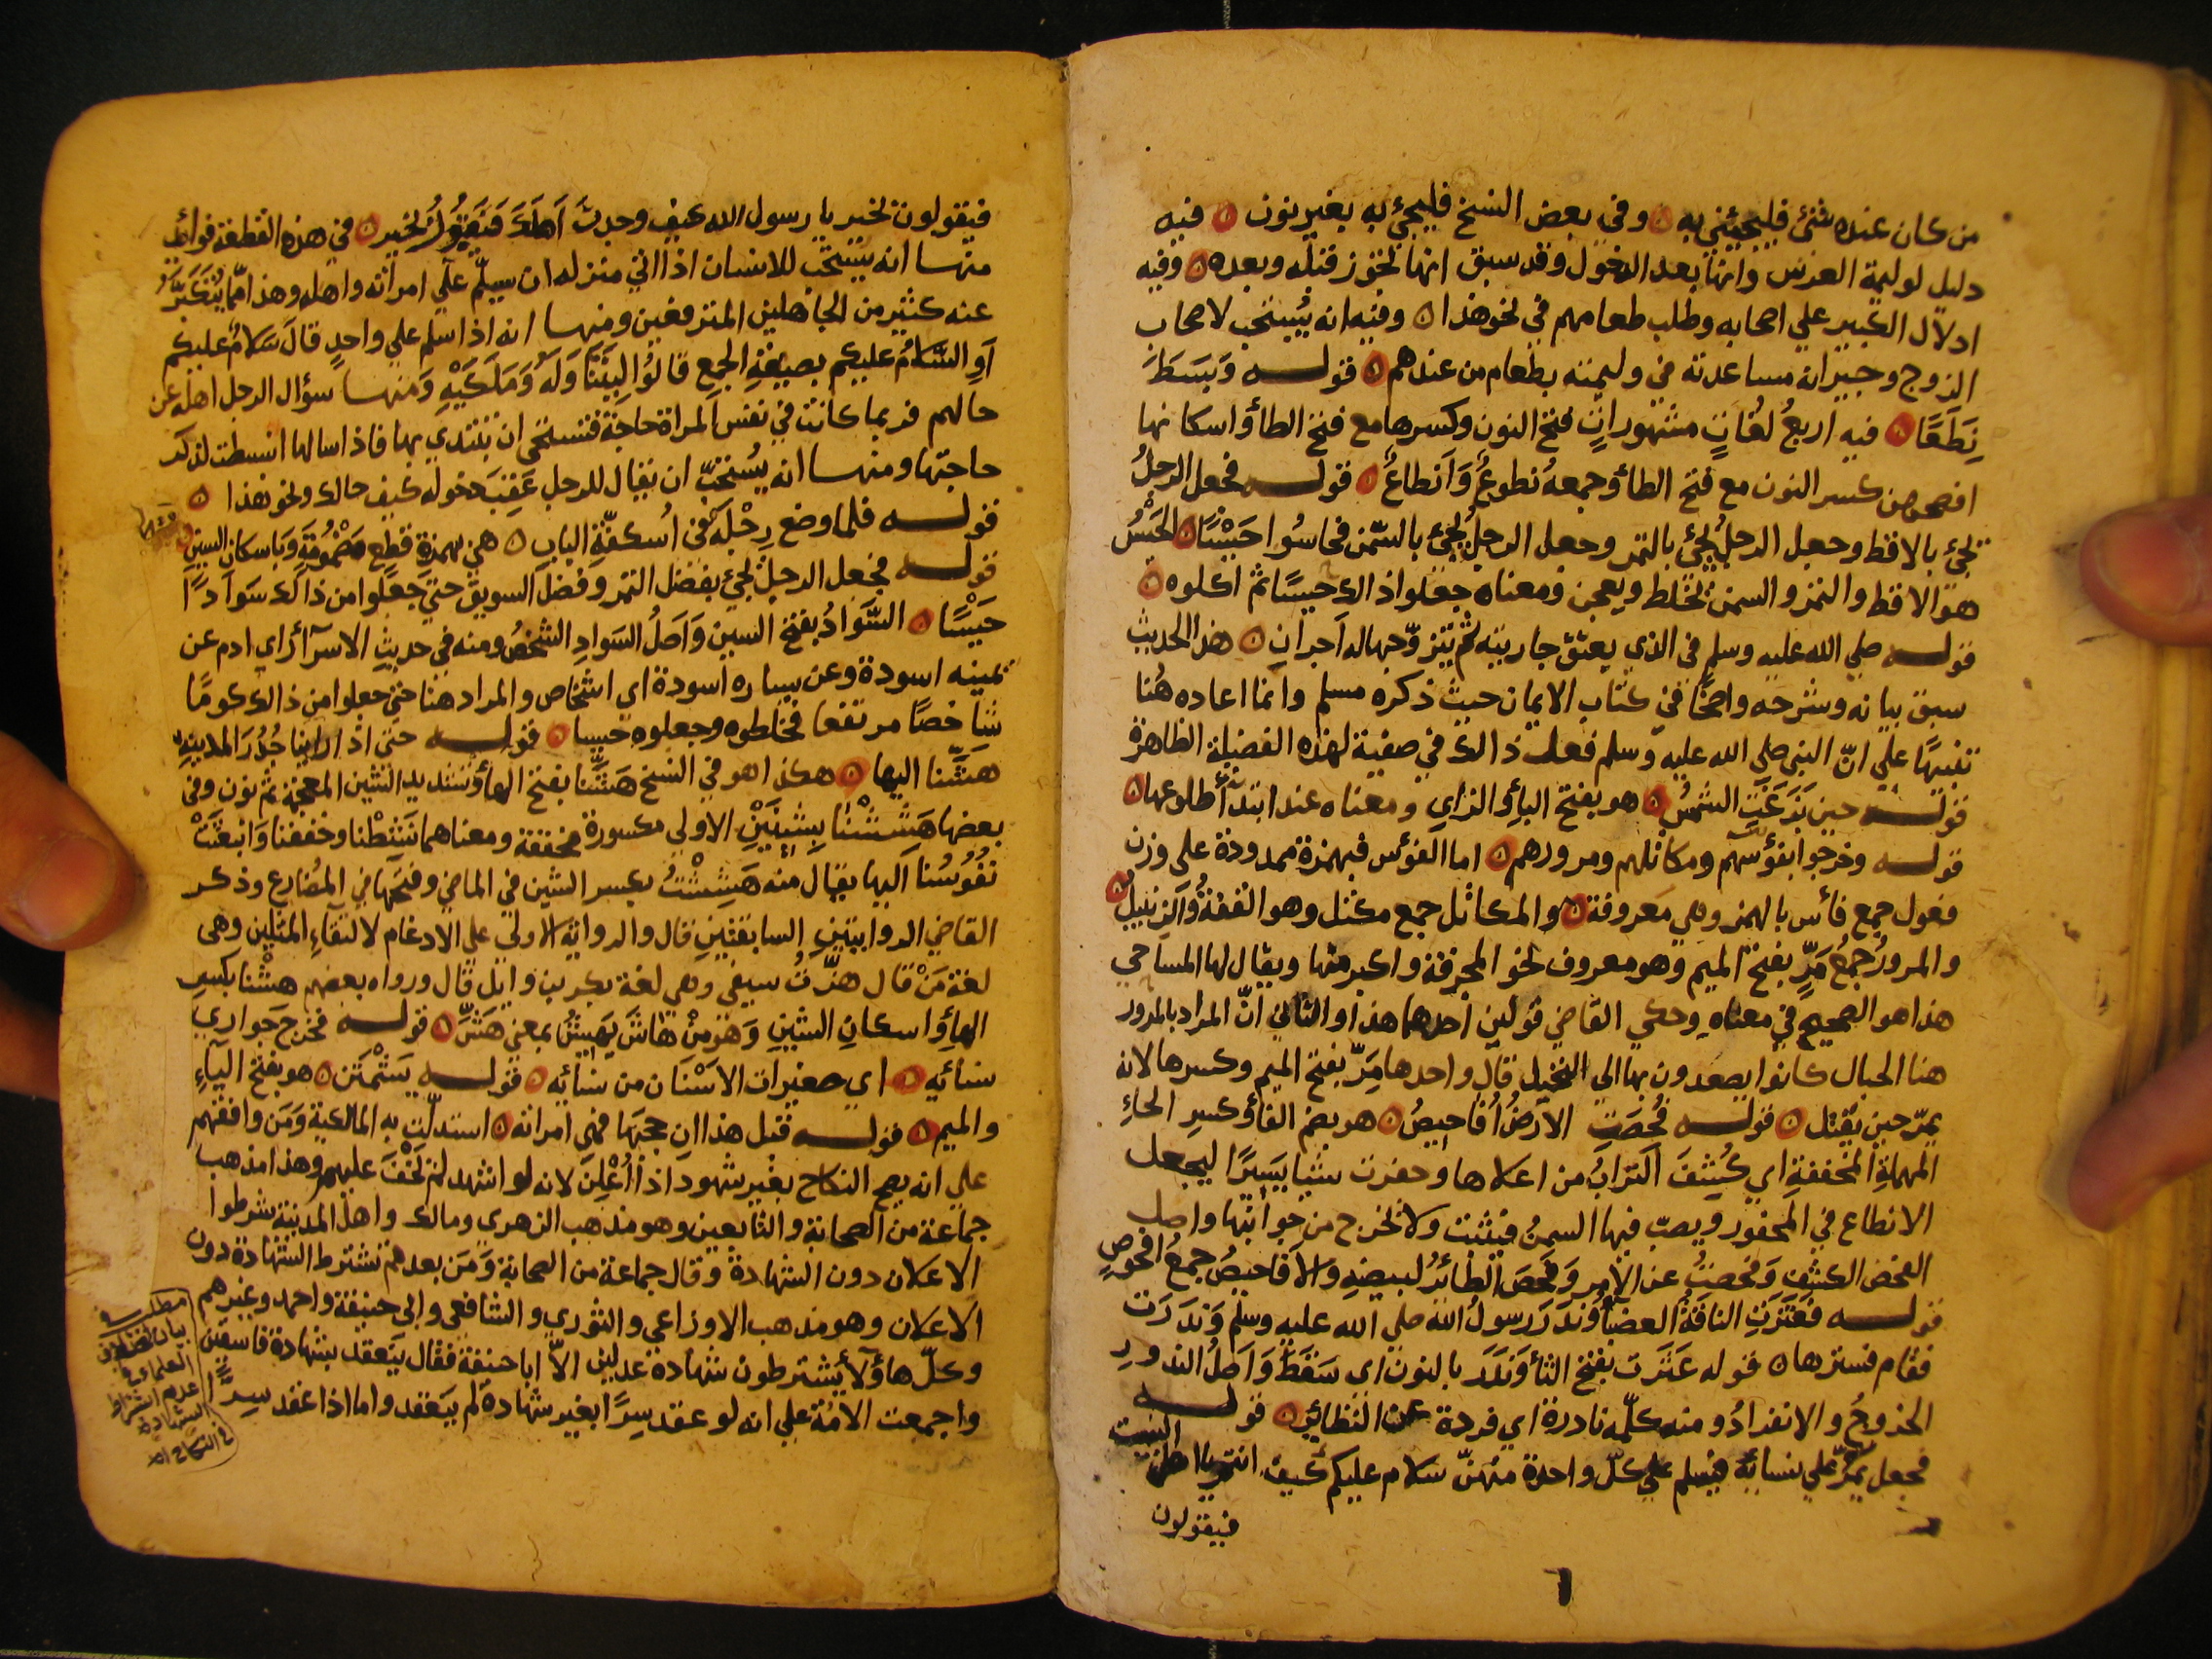 من كان عنده شئ فليجئني به ٥ وفي بعض النسخ فليجئ به بغير نون ٥ فيه
دليل لوليمة العرس وانها بعد الدخول وقد سبق انها تجوز قبله وبعده ٥ وفيه
ادلال الكبير علي اصحابه وطلب طعامهم في نحو هذا ٥ وفيه انه يُستحب لاصحاب
الزوج وجيرانه مساعدته في وليمته بطعام من عندهم ٥ قوله وَبَسَطَ
نِطَعًا ٥ فيه اربعُ لُغَاتٍ مشهوراتٍ فتح النون وكسرها مع فتح الطاَّ واسكانها
افصحهن كسر النون مع فتح الطاَّ وجمعه نُطوعُ وَاَنطاعُ ٥ قوله فجعل الرجلُ
يجئ بالاقط وجعل الرجلُ يجئ بالتمر وجعل الرجلُ يجئ بالسّمن فحاسُوا حَيْسًا ٥ الحَيْسُ
هو الاقط والتمر والسمن يخلط ويعجن ومعناه جعلوا ذالك حيسًا ثم اكلوه ٥
قوله صلي الله عليه وسلم في الذي يعتق جاريته ثم يتزوّجها له اَجرانِ ٥ هذا الحديث
سبق بيانه وشرحه واضحًا في كتاب الايمان حيث ذكره مسلم وانما اعاده هُنا
تنبيهًا علي انّ النبي صلي الله عليه وسلم فعل ذالك في صفية لهذه الفضيلة الظاهرة
قوله حين بَزَغَتِ الشمسُ ٥ هو بفتح الباَّ والزاي ومعناه عند ابتداَّ طلوعها ٥
قوله وخرجوا بفؤسهم ومكاتلهم ومرورهم ٥ اما الفؤس فبهمزة ممدودة على وزن
فعول جمع فأس بالهمز وهي معروفة ٥ والمكاتل جمع مكتل وهو القفةُ وَالزنبيلُ ٥
والمرورُ جمعُ مَرٍّ بفتح الميم وهو معروف نحو المجرفة واكبر منها ويقال لها المساحي
هذا هو الصحيح في معناهِ وحكي القاضي قولين احدهما هذا والثاني انّ المراد بالمرور
هنا الحبال كانوا يصعدون بها الي النخيل قال واحدها مَرّ بفتح الميم وكسرها لانه
يمرّ حين يُفتل ٥ قوله فُحِصَتِ الارضُ اُفاحِيصُ ٥ هو بضم الفاَّ وكسرِ الحاءِ
المهملةِ المخففةِ اي كُشِفَ التّرابُ من اعلاها وحفرت شيا يَسِيرًا ليجعل
الانطاع في المحفور ويصبّ فيها السمنُ فيثبت ولا يخرج من جوانبها واصل
الفحص الكشف وَفحصتُ عن الامر وَفَحَصَ الطائرُ لبيضهِ وَالاَفاحيصُ جمعُ افحوصٍ
قوله فعَثَرَتِ الناقةُ العضباَّ وَنَدَرَ رسولُ الله صلي الله عليه وسلم وَنَدَرَت
فقام فسترها ٥ قوله عَثَرَت بفتح الثاَّ وَنَدَرَ بالنون اي سَقَطَ وَاَصلُ الندورِ
الخروجُ والانفرادُ ومنه كلمه نادرة اي فردة عن النظائرِ ٥ قوله
فجعل يمرّ علي نسائه فيسلم علي كلّ واحدة منهنّ سَلام عليكم كيف انتم يا اهل البيت
فيقولون
٦
فيقولون نحير يا رسول الله كيف وجدتَ اَهلكَ فَيَقُولُ نحير ٥ في هذه القطعة فوائد
منها انه يستحَبّ للانسان اذا اتي منزله ان يسلّم علي امراته واهله وهذا ممّا يَتَكَبَّرُ
عنه كثير من الجاهلين المترفعين ومنها انه اذا سلم علي واحدٍ قالَ سَلامُ عليكم
اَوِ السَّلامُ عليكم بصيغةِ الجمع قالُوا لِيَتَنَاوَلهُ وَمَلَكَيْهِ وَمنها سؤال الرجل اهله عن
حالهم فربما كانت في نفس المراة حاجة فتستحي ان تبتدي بها فاذا سالها انبسطت لذكر
حاجتها ومنها انه يُستحبّ ان يقال للرجل عَقِبَ دخوله كيف حالك ونحو هذا ٥
قوله فلما وضع رِجْلَه في اُسكفّةِ البابِ ٥ هي بهمزة قطع مَضْمُومَةٍ وَبَاسكان السينِ
قوله فجعل الرجلُ يجئ بفضل التمر وفضل السويق حتي جَعَلوا من ذالك سَوَادًا
حَيْسًا ٥ السَّوَادُ بفتح السين وَاَصَلُ السَوادِ الشخصُ ومنه في حديثِ الاسرآ أراي ادم عن
يمينه اسودة وعن يساره اسودة اي اشخاص والمراد هنا حتي جعلوا من ذالك كومًا
شاخصًا مرتفعا فخلطوه وجعلوه حيسا ٥ قوله حتى اذا راينا جُدُرَ المدينةِ
هَشِّنا اليها ٥ هكذا هو في النسخ هَشَّنا بفتح الهاَّ وتشديد الشين المعجمة ثم نون وفي
بعضها هَشِشْنا بِشِينَيْنِ الاولى مكسورة مخففة ومعناهما نَشَطْنا وخففنا وَانبعثَتْ
نفُوسُنا اليها يقال منه هَشِشْتُ بكسر الشين في الماضي وفتحها في المضارع وذكر
القاضي الروايتينِ السابقتينِ قال والروايه الاولي علي الادغام لالتقاءِ المثلين وهى
لغة مَنْ قال هَزّت سيفي وهي لغة بكر بن وايل قال ورواه بعضهم هِشْنا بكسرِ
الهاَّ واسكانِ الشينِ وَهْوَ مِنْ هاشَ يَهِيشُ بمعني هَشَّ ٥ قوله فخرج جَوارِي
نسائِهِ ٥ اي صغيرات الاسْنَان من نسائه ٥ قوله يَشْمَتْن ٥ هو بفتح الياَّءِ
والميم ٥ قوله قبل هذا ان حجبَهَا فهى امراته ٥ استدلّت به المالكية وَمَن وافقهم
علي انه يصح النكاح بغير شهودٍ اذا اُعْلِنَ لانه لو اشهد لمْ يَخْفَ عليهم وهذا مذهب
جماعة من الصحابة والتابعين وهو مذهب الزهري ومالك واهل المدينة شرطوا
الاعلان دون الشهادة وقال جماعة من الصحابة وَمَن بعدهم تشترط الشهادة دون
الاعلان وهو مذهب الاوزاعي والثوري والشافعي وابى حنيفة واحمد وغيرهم
وكلّ هاؤلاَّ يشترطون شهادة عدلين الاّ ابا حنيفة فقال ينعقد بشهادة فاسقين
واجمعت الامّة علي انه لو عقد سِرًا بغير شهادة لم ينعقد واما اذا عقد سِرًّا
مطلب
بيان اختلاف
العلماء في
عدم اشتراط
الشهادة
في النكاح اه